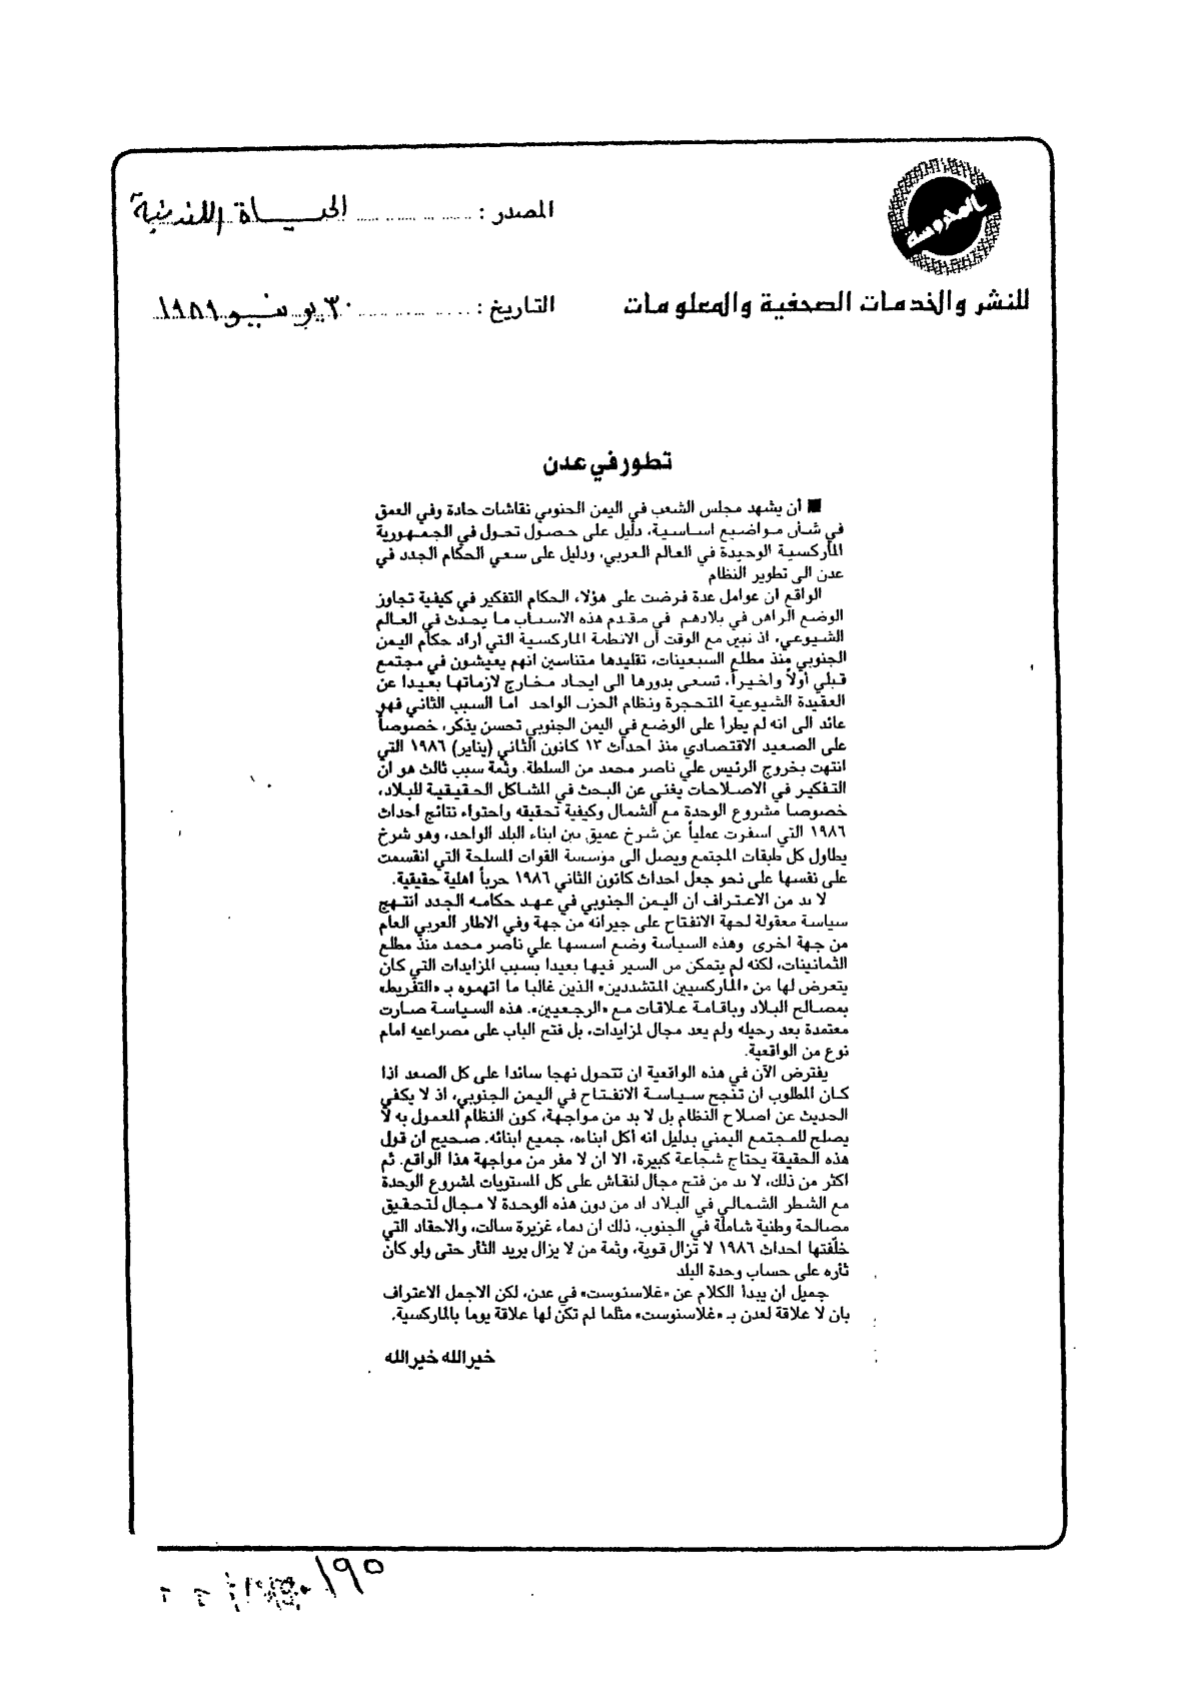 المصدر : الحياة اللندنية
للنشر والخدمات الصحفية والمعلومات
التاريخ : ٣٠ يونيو ١٩٨٩
تطور في عدن
■ أن يشهد مجلس الشعب في اليمن الجنوبي نقاشات حادة وفي العمق
في شأن مواضيع اساسية، دليل على حصول تحول في الجمهورية
الماركسية الوحيدة في العالم العربي، ودليل على سعي الحكام الجدد في
عدن الى تطوير النظام
الواقع ان عوامل عدة فرضت على هؤلاء الحكام التفكير في كيفية تجاوز
الوضع الراهن في بلادهم في مقدم هذه الاسباب ما يحدث في العالم
الشيوعي، اذ تبين مع الوقت أن الانظمة الماركسية التي اراد حكام اليمن
الجنوبي منذ مطلع السبعينات، تقليدها متناسين انهم يعيشون في مجتمع
قبلي أولاً واخيراً، تسعى بدورها الى ايجاد مخارج لازماتها بعيدا عن
العقيدة الشيوعية المتحجرة ونظام الحزب الواحد اما السبب الثاني فهو
عائد الى انه لم يطرأ على الوضع في اليمن الجنوبي تحسن يذكر، خصوصاً
على الصعيد الاقتصادي منذ احداث ١٣ كانون الثاني (يناير) ١٩٨٦ التي
انتهت بخروج الرئيس علي ناصر محمد من السلطة. وثمة سبب ثالث هو ان
التفكير في الاصلاحات يغني عن البحث في المشاكل الحقيقية للبلاد،
خصوصا مشروع الوحدة مع الشمال وكيفية تحقيقه واحتواء نتائج احداث
١٩٨٦ التي اسفرت عملياً عن شرخ عميق بين ابناء البلد الواحد، وهو شرخ
يطاول كل طبقات المجتمع ويصل الى مؤسسة القوات المسلحة التي انقسمت
على نفسها على نحو جعل احداث كانون الثاني ١٩٨٦ حرباً اهلية حقيقية.
لا بد من الاعتراف ان اليمن الجنوبي في عهد حكامه الجدد انتهج
سياسة معقولة لجهة الانفتاح على جيرانه من جهة وفي الاطار العربي العام
من جهة اخرى وهذه السياسة وضع اسسها علي ناصر محمد منذ مطلع
الثمانينات، لكنه لم يتمكن من السير فيها بعيدا بسبب المزايدات التي كان
يتعرض لها من «الماركسيين المتشددين» الذين غالبا ما اتهموه بـ «التفريط»
بمصالح البلاد وباقامة علاقات مع «الرجعيين». هذه السياسة صارت
معتمدة بعد رحيله ولم يعد مجال لمزايدات، بل فتح الباب على مصراعيه امام
نوع من الواقعية.
يفترض الآن في هذه الواقعية ان تتحول نهجا سائدا على كل الصعد اذا
كان المطلوب ان تنجح سياسة الانفتاح في اليمن الجنوبي، اذ لا يكفي
الحديث عن اصلاح النظام بل لا بد من مواجهة، كون النظام المعمول به لا
يصلح للمجتمع اليمني بدليل انه أكل ابناءه، جميع ابنائه. صحيح ان قول
هذه الحقيقة يحتاج شجاعة كبيرة، الا ان لا مفر من مواجهة هذا الواقع. ثم
اكثر من ذلك، لا بد من فتح مجال لنقاش على كل المستويات لمشروع الوحدة
مع الشطر الشمالي في البلاد اذ من دون هذه الوحدة لا مجال لتحقيق
مصالحة وطنية شاملة في الجنوب، ذلك ان دماء غزيرة سالت، والاحقاد التي
خلّفتها احداث ١٩٨٦ لا تزال قوية، وثمة من لا يزال يريد الثأر حتى ولو كان
ثأره على حساب وحدة البلد
جميل ان يبدأ الكلام عن «غلاسنوست» في عدن، لكن الاجمل الاعتراف
بان لا علاقة لعدن بـ «غلاسنوست» مثلما لم تكن لها علاقة يوما بالماركسية.
خيرالله خيرالله
١٩٥